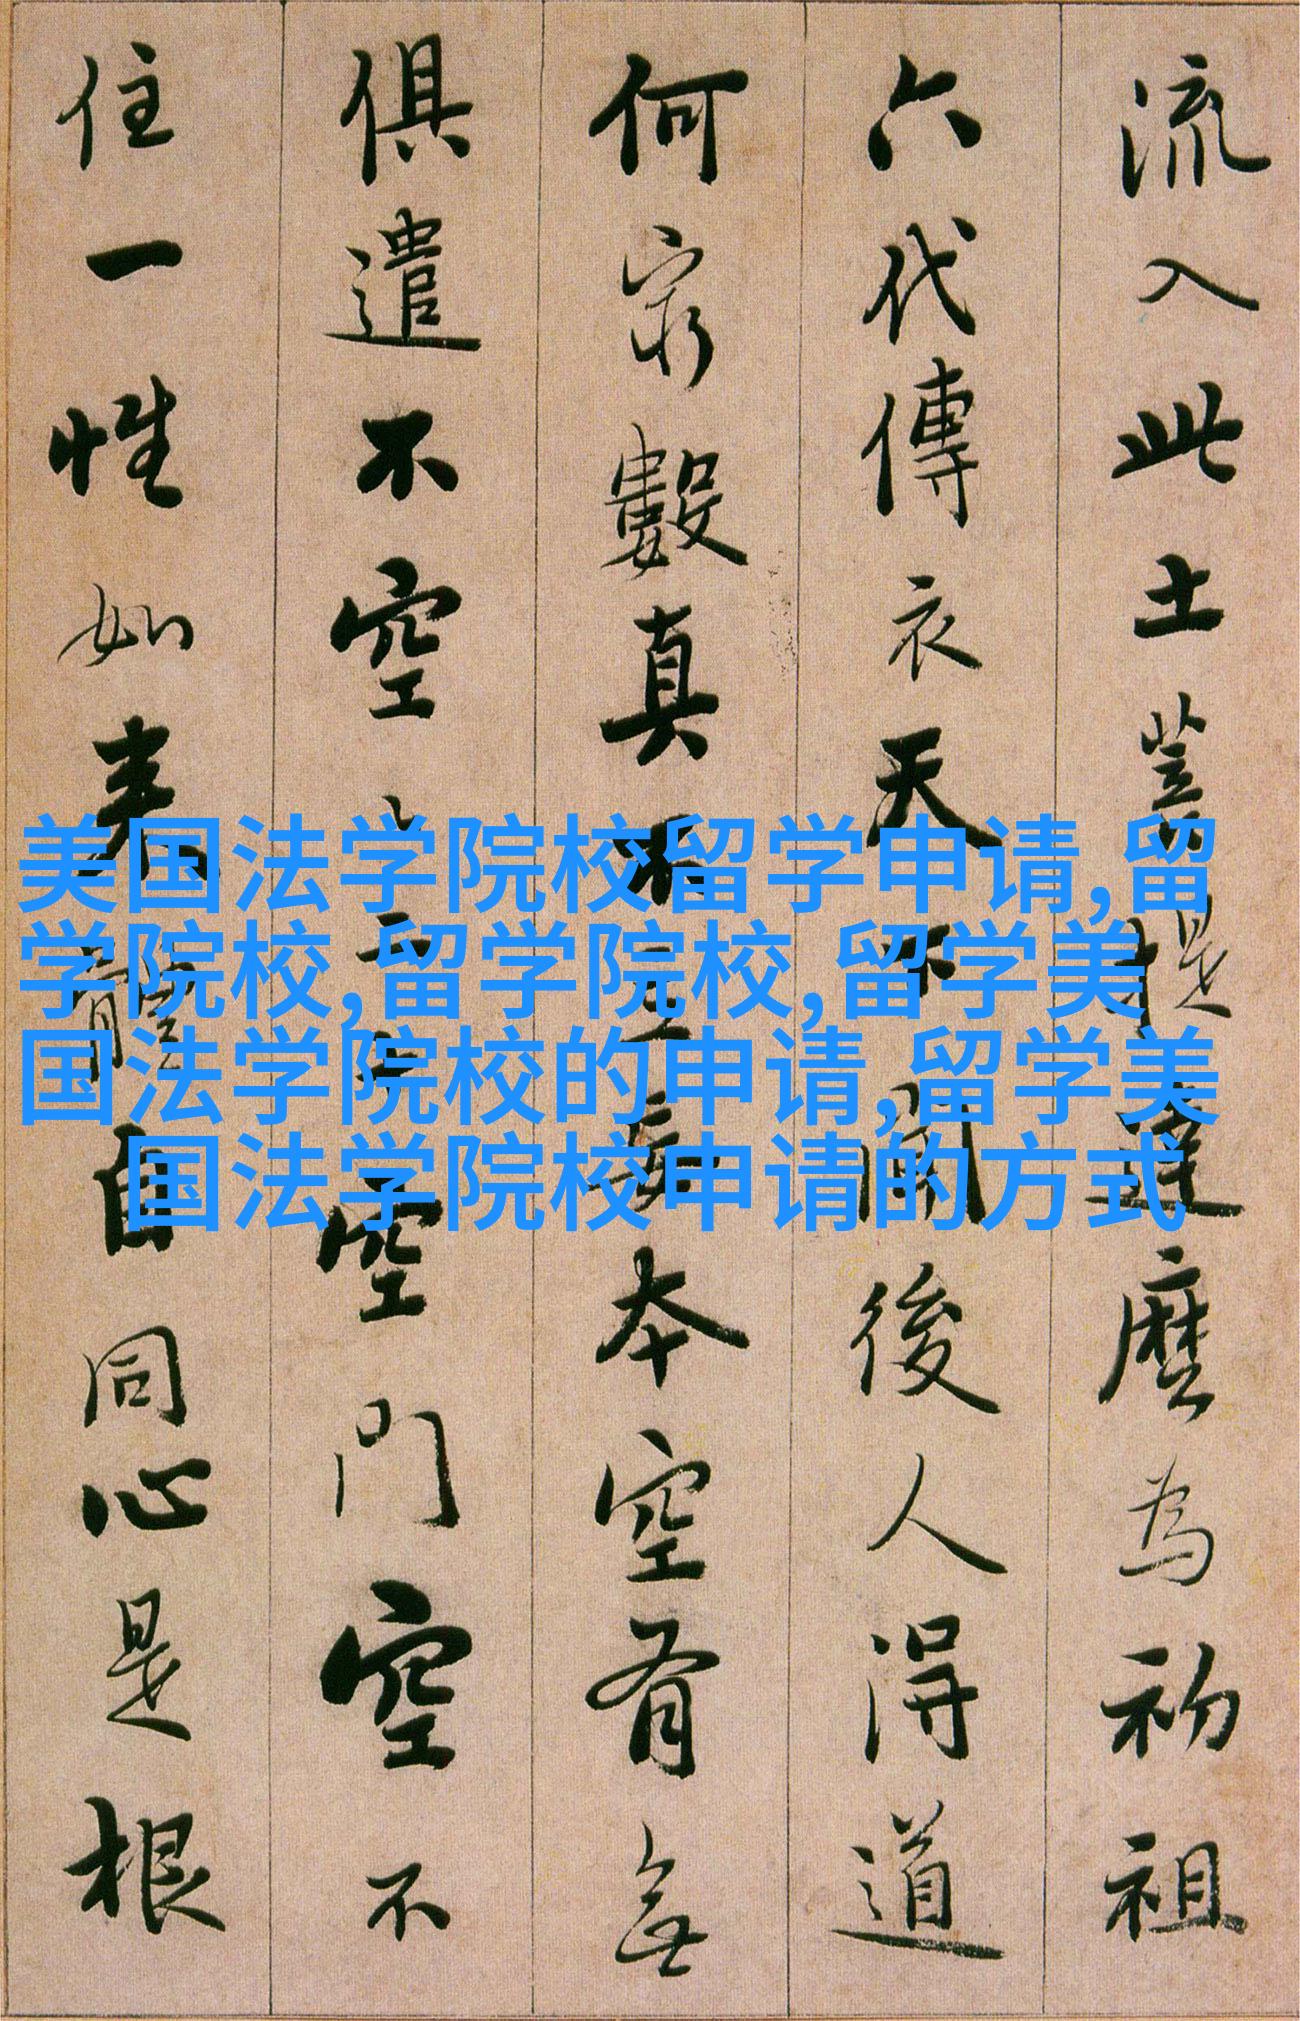 流入此土菩提達麼為初祖
六代傳衣天下聞後人得道
何窮數真不立妄本空有無
俱遣不空空門空不
住一性如来體自同心是根
美国法学院校留学申请,留
学院校,留学院校,留学美
国法学院校的申请,留学美
国法学院校申请的方式